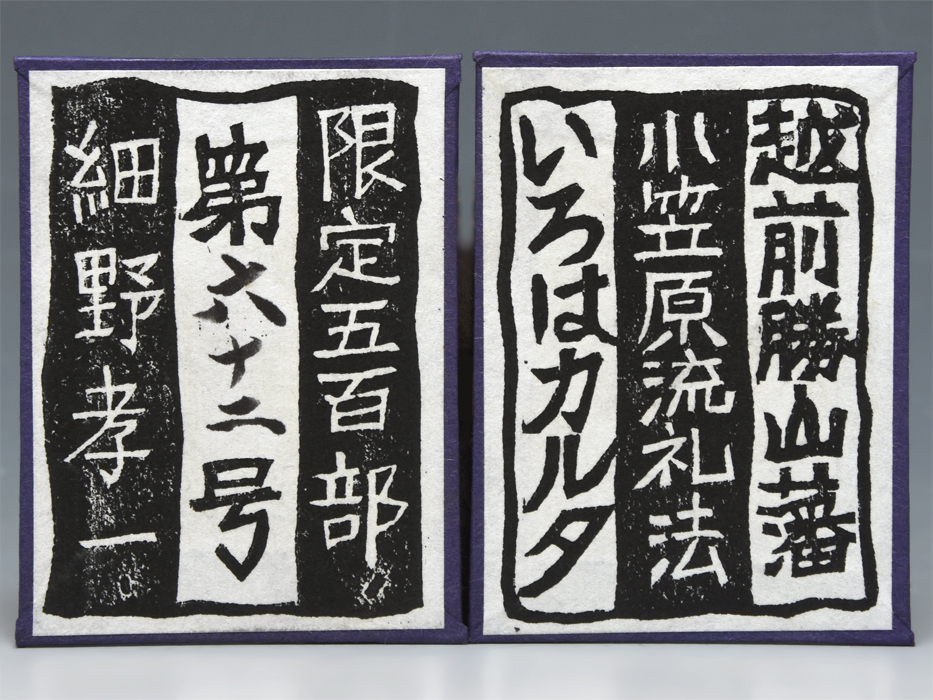 越前勝山藩
小笠原流礼法
いろはカルタ
限定五百部
第六十二号
細野孝一